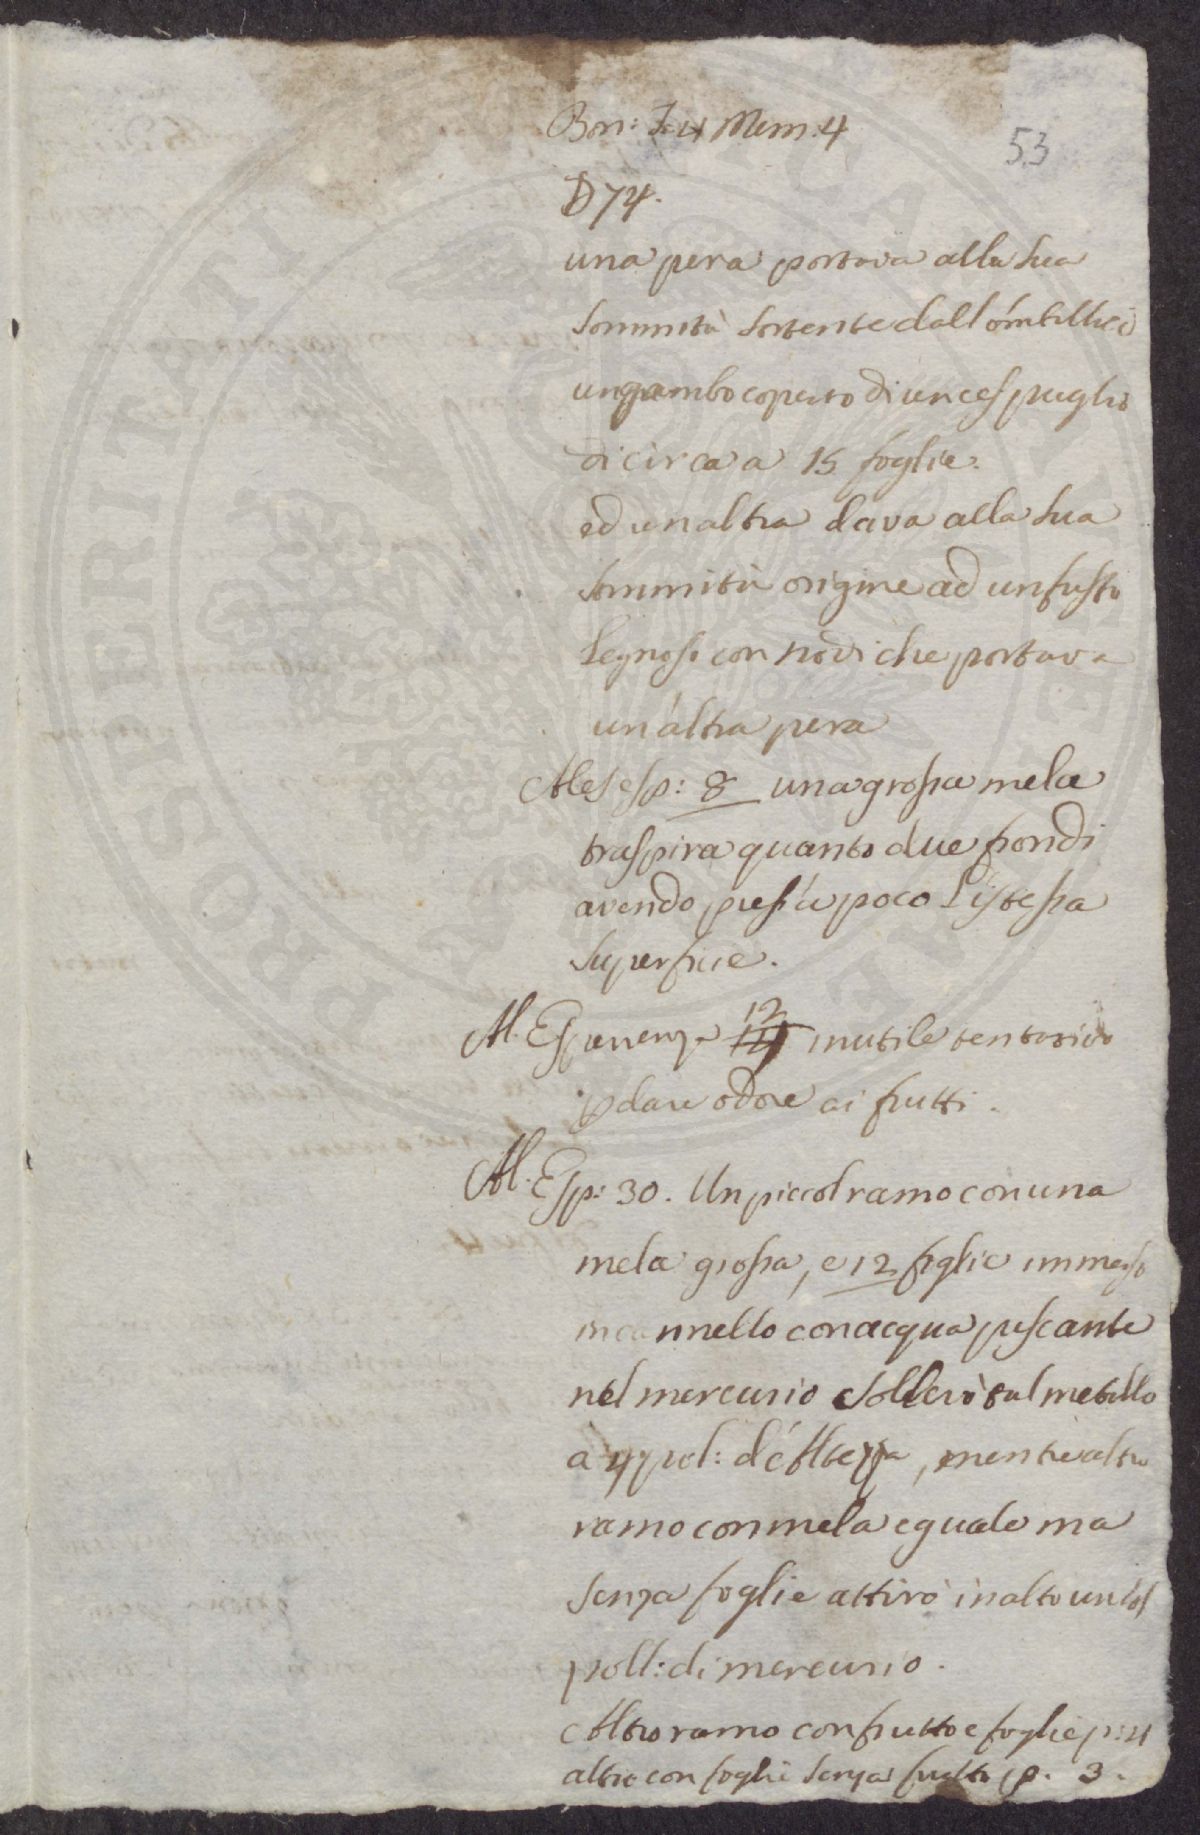 Bon: Mem: 4
53
D 74.
una pera portava alla sua
sommità sortente dall'ombellico
un gambo coperto di un cespuglio
di circa a 15 foglie.
ed un altra dava alla sua
sommità origine ad un fusto
legnoso con nodi che portava
un'altra pera
Ales esp: 8 una grossa mela
traspira quanto due frondi
avendo press'a poco l'istessa
superficie.
Al. Esperienza 12 inutile tentativo
p dare odore ai frutti.
Al. Esp: 30. Un piccol ramo con una
mela grossa, e 12 foglie immerso
in cannello con acqua pescante
nel mercurio sollevò tal metallo
a 4 pol: d'Altezza, mentre altro
ramo con mela eguale ma
senza foglie attirò in alto un sol
poll: di mercurio.
Altro ramo con frutto e foglie p: 4
altro con foglie senza frutto p. 3.
PROSPERITATI PUBLICAE AUGENDAE